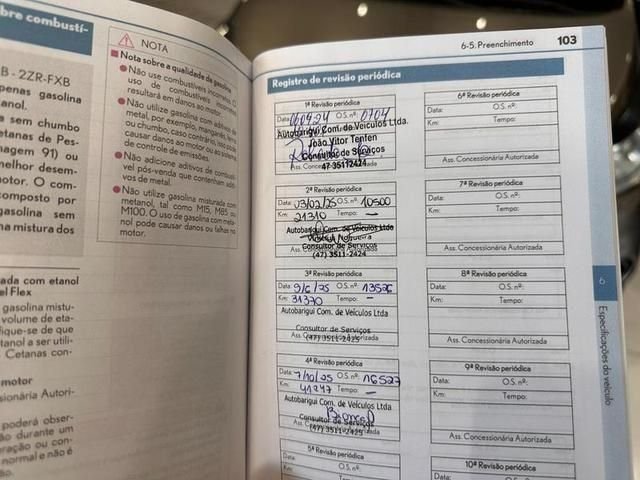 bre combustí-
B - 2ZR-FXB
penas gasolina
anol.
a sem chumbo
etanas de Pes-
nagem 91) ou
elhor desem-
otor. O com-
omposto por
gasolina sem
na mistura dos
ada com etanol
el Flex
gasolina mistu-
volume de eta-
fique-se de que
tanol a ser utili-
Cetanas con-
motor
sionária Autori-
poderá obser-
ão durante um
ração ou con-
normal e não é
NOTA
Nota sobre a qualidade da gasolina
Não use combustíveis impróprios. O
uso de combustíveis incorretos
resultará em danos ao motor.
Não utilize gasolina com aditivos de
metal, por exemplo, manganês, ferro
ou chumbo, caso contrário, isso pode
causar danos ao motor ou ao sistema
de controle de emissões.
Não adicione aditivos de combustí-
vel pós-venda que contenham aditi-
vos de metal.
Não utilize gasolina misturada com
metanol, tal como M15, M85 ou
M100. O uso de gasolina com meta-
nol pode causar danos ou falhas no
motor.
6-5. Preenchimento 103
Registro de revisão periódica
1ª Revisão periódica
Data: O.S. nº: 0704
Autobarigui Com. de Veiculos Ltda.
João Vitor Tenfen
Consultor de Serviços
47 3511-2424
2ª Revisão periódica
Data: 03/02/25 O.S. nº: 10500
Km: 21310 Tempo: —
Autobarigui Com. de Veículos Ltda
Consultor de Serviços
(47) 3511-2424
3ª Revisão periódica
Data: 9/6/25 O.S. nº: 13526
Km: 31370 Tempo: —
Autobarigui Com. de Veículos Ltda
Consultor de Serviços
(47) 3511-2425
4ª Revisão periódica
Data: 7/10/25 O.S. nº: 16527
Km: 41247 Tempo: —
Autobarigui Com. de Veículos Ltda
Consultor de Serviços
(47) 3511-2425
5ª Revisão periódica
Data: O.S. nº:
Km: Tempo:
6ª Revisão periódica
Data: O.S. nº:
Km: Tempo:
Ass. Concessionária Autorizada
7ª Revisão periódica
Data: O.S. nº:
Km: Tempo:
Ass. Concessionária Autorizada
8ª Revisão periódica
Data: O.S. nº:
Km: Tempo:
Ass. Concessionária Autorizada
9ª Revisão periódica
Data: O.S. nº:
Km: Tempo:
Ass. Concessionária Autorizada
10ª Revisão periódica
6
Especificações do veículo